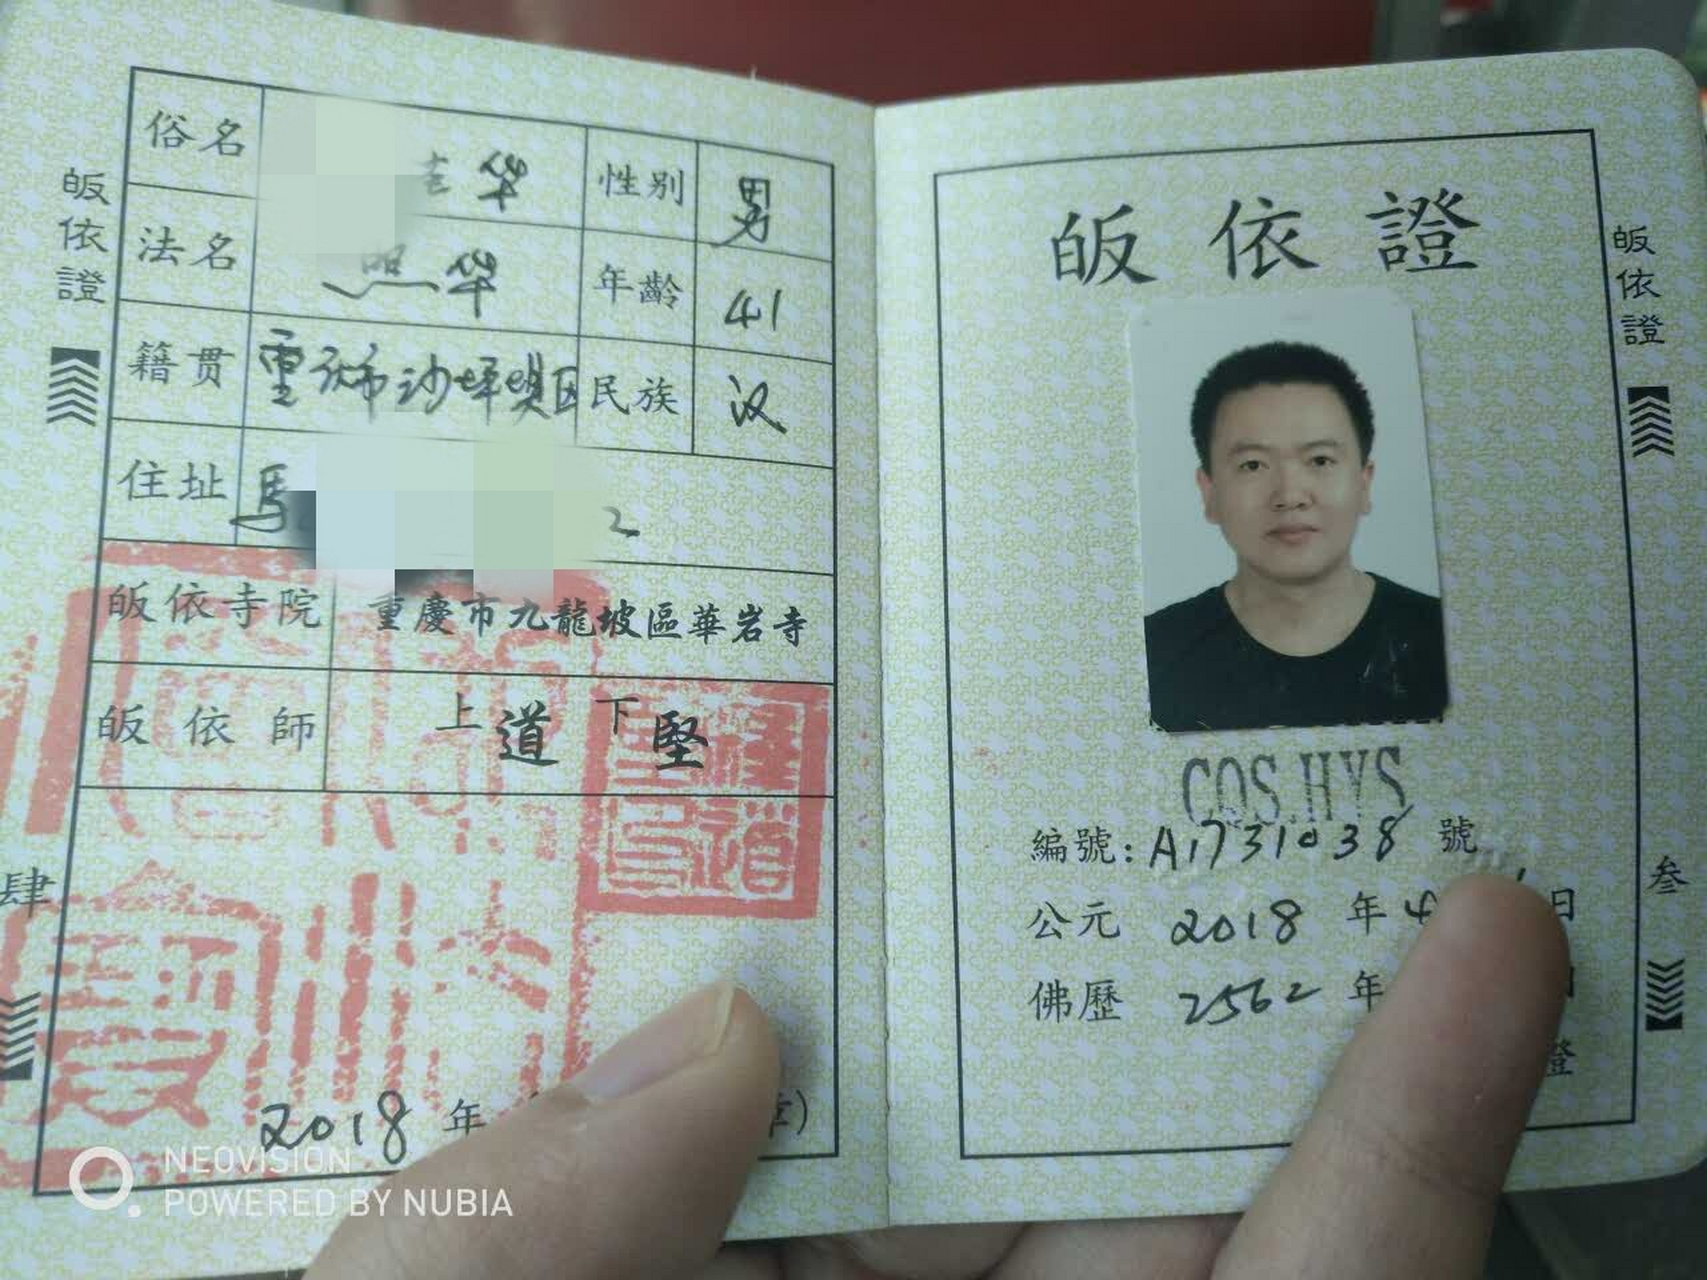 皈依證
俗名 华 性别 男
法名 照华 年齡 41
籍贯 重庆市沙坪坝区 民族 汉
住址
皈依寺院 重慶市九龍坡區華岩寺
皈依師 上道下堅
肆
2018 年
NEOVISION
POWERED BY NUBIA
皈依證
皈依證
CQS.HYS
編號: A1731038 號
公元 2018 年 4 日
佛歷 2562 年
叁